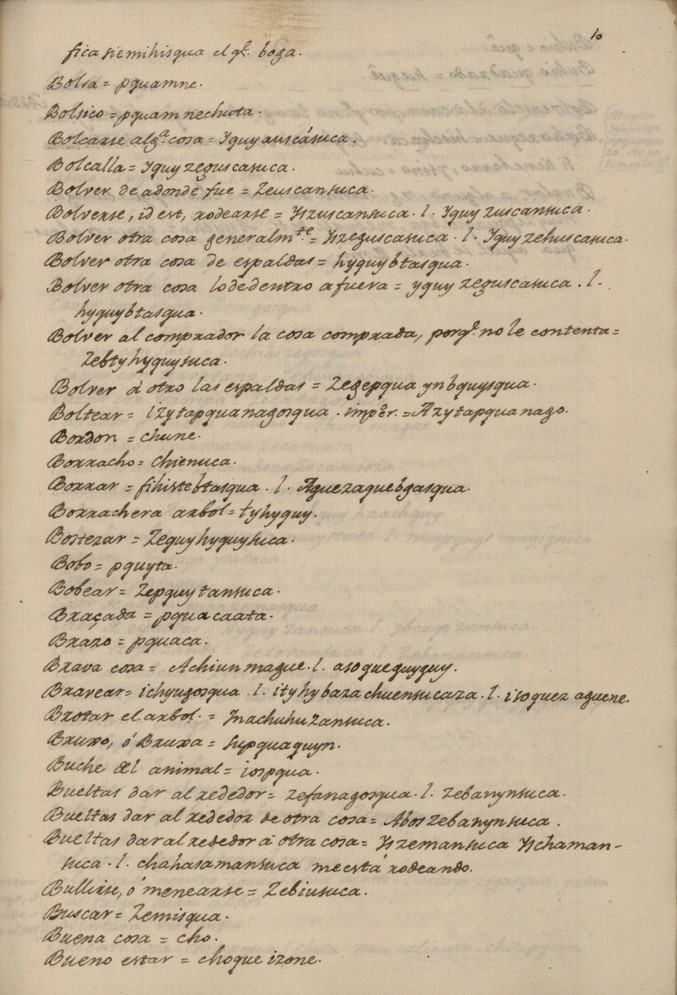 10
fica siemihisqua el q.e boga.
Bolsa = pquamne.
Bolsico = pquamnechuta.
Bolcarse alg.a cosa = Yquyauscasuca.
Bolcalla = Yquyzeguscasuca.
Bolver de adonde fue = Zeuscansuca.
Bolverse, id est, rodearse = Yszuscansuca. l. Yquyzuscansuca.
Bolver otra cosa generalm.te = Yszeguscasuca. l. Yquyzehuscasuca.
Bolver otra cosa de espaldas = hyquybtasqua.
Bolver otra cosa lo de dentro afuera = yquyzeguscasuca. l.
hyquybtasqua.
Bolver al comprador la cosa comprada, porq.e no le contenta =
Zebtyhyquysuca.
Bolver á otro las espaldas = Zegepqua ynbquysqua.
Boltear = izytapquanagosqua. imper. = Azytapquanago.
Bordon = chune.
Borracho = chiensuca.
Borrar = fihistebtasqua. l. Aguezaquebgasqua.
Borrachera arbol = tyhyquy.
Bostezar = Zequyhyquysuca.
Bobo = pquyta.
Bobear = Zepquytansuca.
Braçada = pquacaata.
Brazo = pquaca.
Brava cosa = Achiunmague. l. asoqueguyquy.
Bravear = ichyugosqua. l. ityhybazachuensucaza. l. isoquez aguene.
Brotar el arbol. = Ynachuhuzansuca.
Bruxo, ó Bruxa = supquaguyn.
Buche del animal = iospqua.
Bueltas dar al rededor = zefanagosqua. l. zebanynsuca.
Bueltas dar al rededor de otra cosa = Aboszebanynsuca.
Bueltas dar al rededor a otra cosa = Yszemansuca Yschaman-
suca. l. chahasamansuca me está rodeando.
Bullirse, ó menearse = Zebiusuca.
Buscar = Zemisqua.
Buena cosa = cho.
Bueno estar = choque izone.